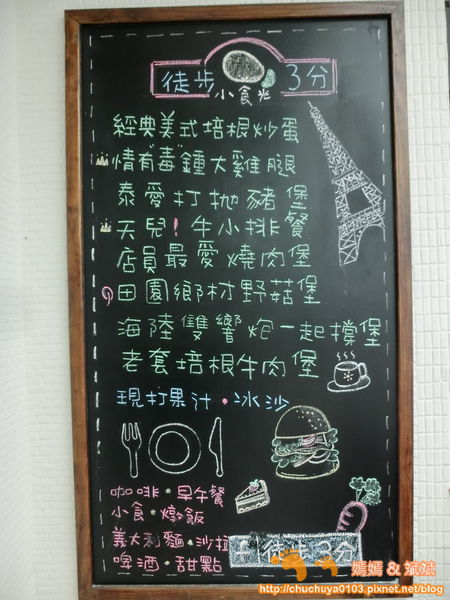 徒步 小食光 3分
經典美式培根炒蛋
情有"毒"鍾大雞腿
泰愛打拋豬堡
天兒!牛小排餐
店員最愛燒肉堡
田園鄉村野菇堡
海陸雙響炮一起擋堡
老套培根牛肉堡
現打果汁·冰沙
咖啡·早午餐
小食·燉飯
義大利麵·沙拉
啤酒·甜點
徒步3分
媽媽 & 斌斌
http://chuchuya0103.pixnet.net/blog